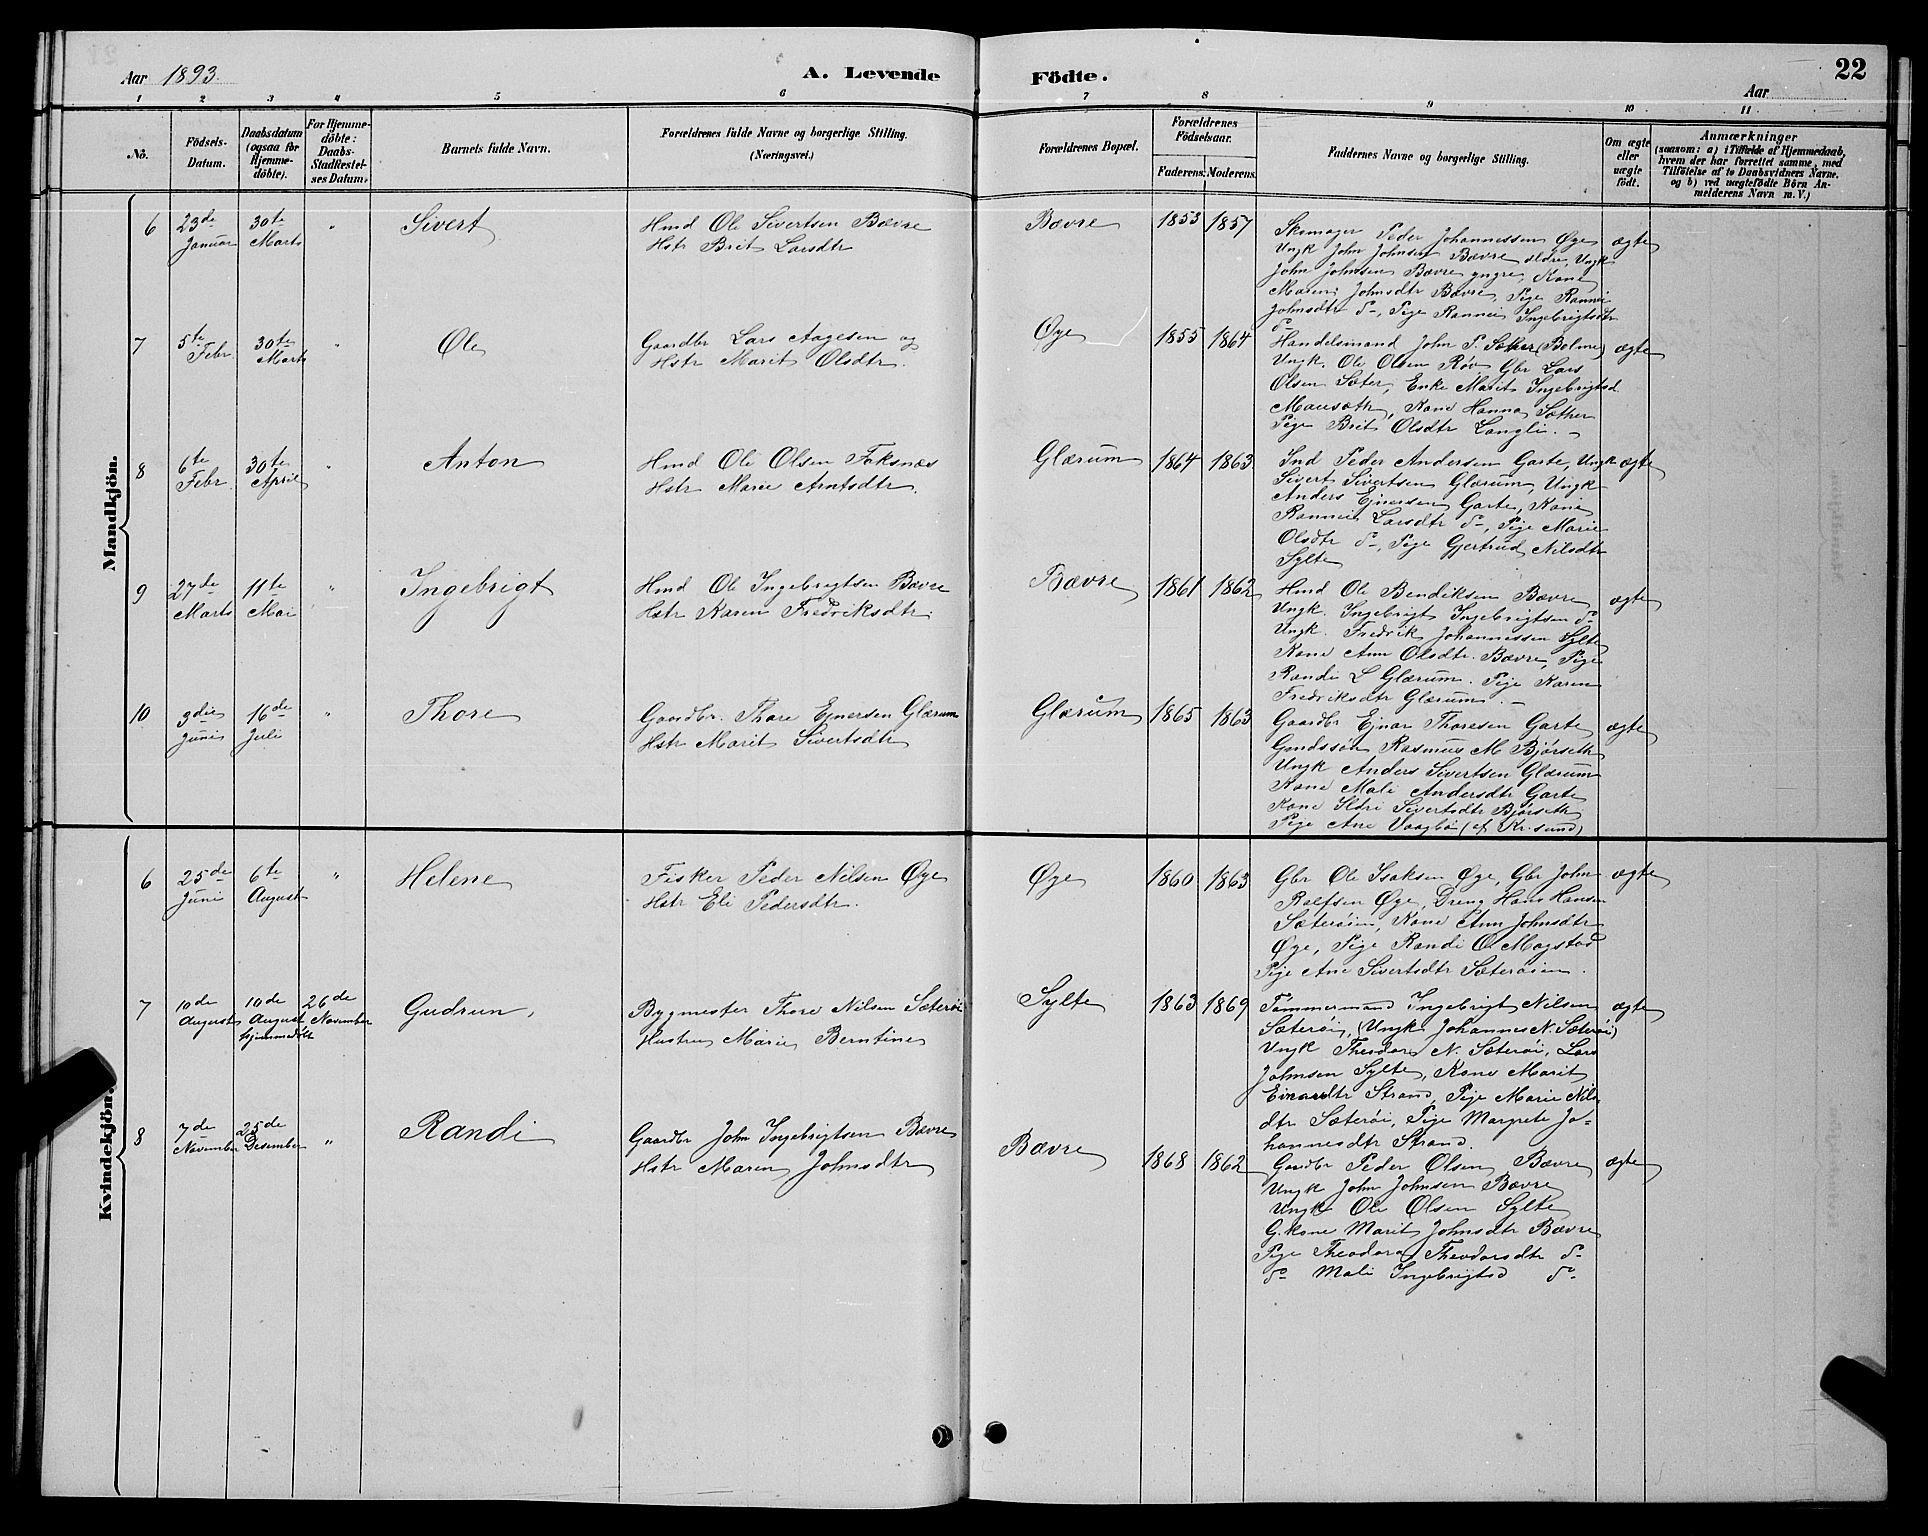 Aar 1893. A. Levende Födte. Aar 22
1 2 3 4 5 6 7 8 9 10 11
No. Födsels-Datum. Daabsdatum (ogsaa for Hjemmedöbte). For Hjemmedöbte: Daabs-Stadfæstelses Datum. Barnets fulde Navn. Forældrenes fulde Navne og borgerlige Stilling. (Næringsvei.) Forældrenes Bopæl. Forældrenes Födselsaar. Faderens. Moderens. Faddernes Navne og borgerlige Stilling. Om ægte eller uægte födt. Anmærkninger (saasom: a) i Tilfælde af Hjemmedaab, hvem der har forrettet samme, med Tilföielse af to Daabsvidners Navne. og b) ved uægtefödte Börn Anmelderens Navn m.V.)
Mandkjön.
6 23de Januar 30te Marts " Sivert
Hmd Ole Sivertsen Bævre
Hstr Brit Larsdtr
Bævre 1853 1857
Skomager Peder Johannessen Øye ægte
Ungk John Johnsen Bævre eldre, Ungk
John Johnsen Bævre yngre, Kone
Maren Johnsdtr Bævre, Pige Rannei
Johnsdtr do, Pige Rannei Ingebrigtsdtr
do
7 5te Febr 30te Marts " Ole
Gaardbr Lars Aagesen og
Hstr Marit Olsdtr.
Øye 1855 1864
Handelsmand John P. Sæther (Bolme) ægte
Ungk. Ole Olsen Røv Gbr Lars
Olsen Sæter, Enke Marit Ingebrigtsd
Mauseth, Kone Hanna Sæther
Pige Brit Olsdtr Langli.
8 6te Febr. 30te April " Anton
Hmd Ole Olsen Foksnæs
Hstr Marie Arntsdtr.
Glærum 1864 1863
Ind Peder Andersen Garte, Ungk ægte
Sivert Sivertsen Glærum, Ungk
Anders Ejnersen Garte, Kone
Rannei Larsdtr do, Pige Marie
Olsdtr do, Pige Gjertrud Nilsdtr
Sylte
9 27de Marts 11te Mai " Ingebrigt
Hmd Ole Ingebrigtsen Bævre
Hstr Karen Fredriksdtr.
Bævre 1861 1862
Hmd Ole Bendiksen Bævre ægte
Ungk. Ingebrigt Ingebrigtsen do
Ungk. Fredrik Johannessen Sylte
Kone Ann Olsdtr. Bævre, Pige
Randi L Glærum. Pige Karen
Fredriksdtr Glærum.
10 3die Juni 16de Juli " Thore
Gaardbr. Thore Ejnersen Glærum
Hstr Marit Sivertsdtr
Glærum 1865 1863
Gaardbr Ejnar Thoresen Garte ægte
Gmdssøn Rasmus M Bjørseth
Ungk Anders Sivertsen Glærum
Kone Mali Andersdtr Garte
Kone Ildri Sivertsdtr Bjørseth
Pige Ane Vaagbø (af Kr.sund)
Kvindekjön.
6 25de Juni 6te August " Helene
Fisker Peder Nilsen Øye
Hstr Eli Pedersdtr.
Øye 1860 1863
Gbr Ole Isaksen Øye, Gbr John ægte
Ralfsen Øye, Dreng Hans Hansen
Sæterøien, Kone Ann Johnsdtr
Øye, Pige Randi O Mogstad
Pige Ane Sivertsdtr Sæterøien.
7 10de August 10de August hjemmedøbt 26de November Gudrun
Bygmester Thore Nilsen Sæterøi
Hustru Marie Berntine
Sylte 1863 1869
Tømmermand Ingebrigt Nilsen ægte
Sæterøi, (Ungk Johannes N. Sæterøi)
Ungk Theodor N. Sæterøi, Lars
Johnsen Sylte, Kone Marit
Einarsdtr Strand, Pige Marie Nils
dtr Sæterøi, Pige Margrete Jo-
hannesdtr Strand.
8 7de November 25de Desember " Randi
Gaardbr John Ingebrigtsen Bævre
Hstr Maren Johnsdtr
Bævre 1868 1862
Gaardbr Peder Olsen Bævre ægte
Ungk John Johnsen Bævre
Ungk Ole Olsen Sylte
G.kone Marit Johnsdtr Bævre
Pige Theodora Theodorsdtr do
do Mali Ingebrigtsd do